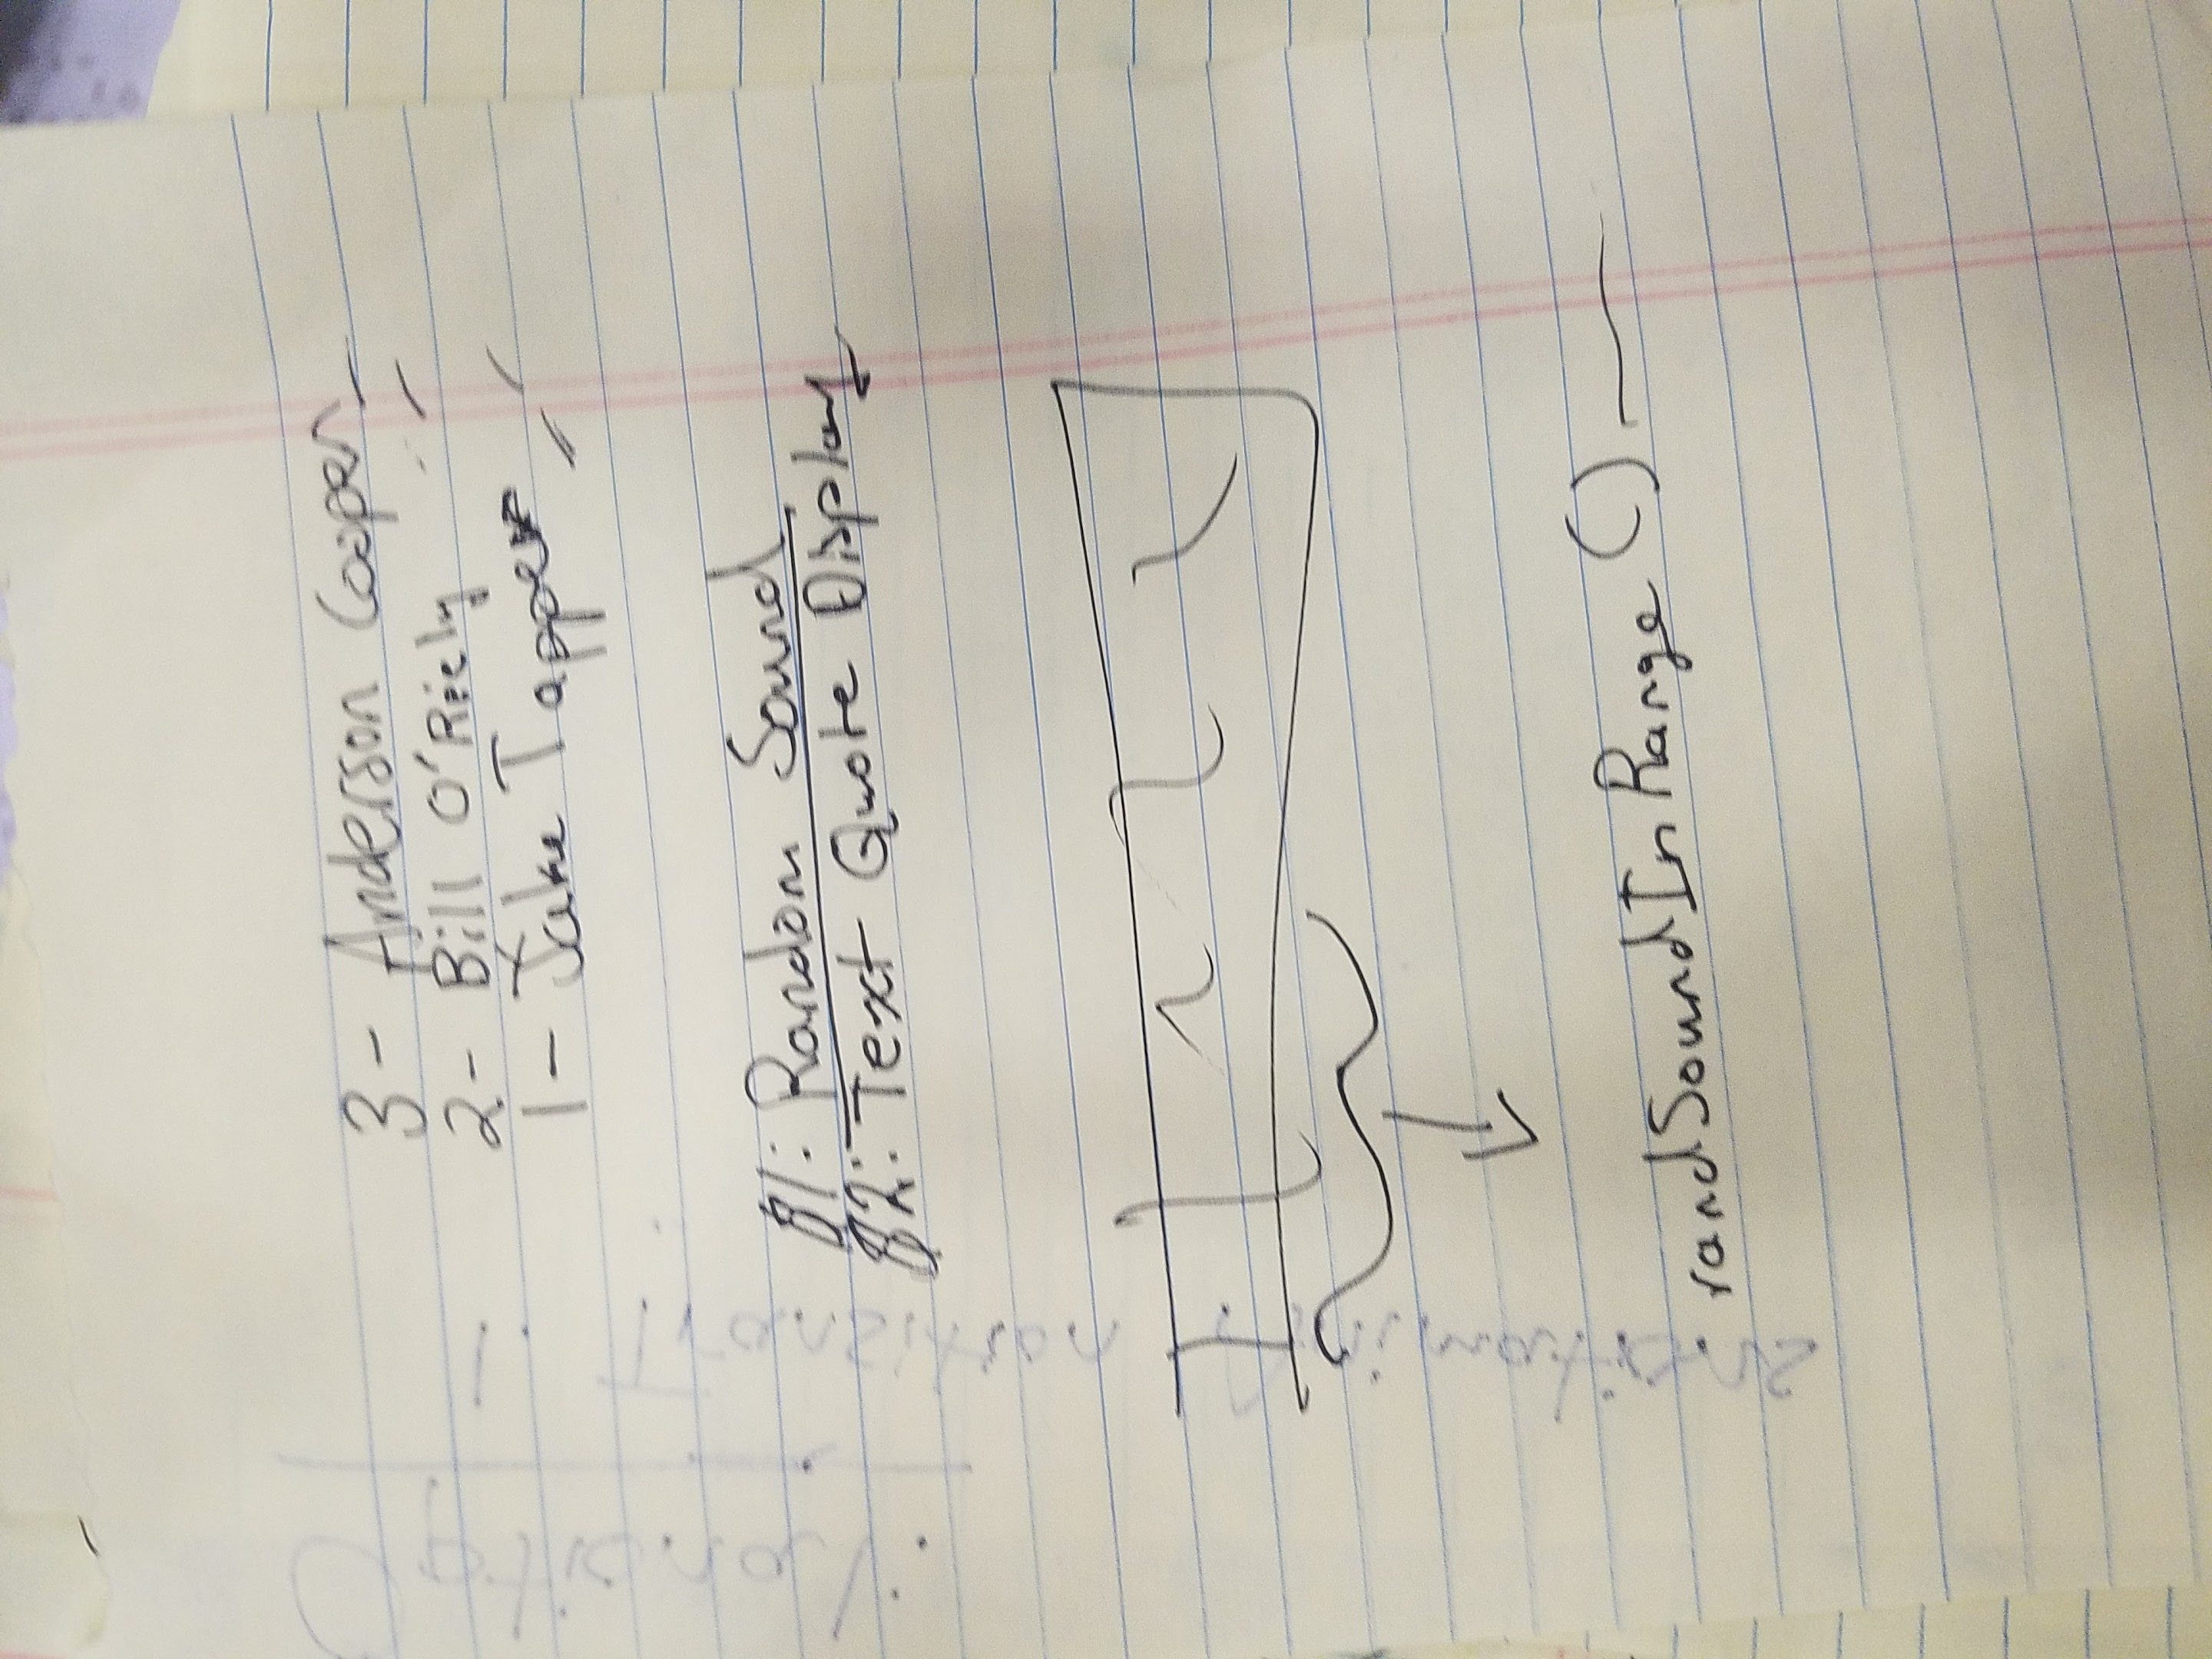 3 - Anderson Cooper
2 - Bill O'Riely
1 - Jake Tapper
B1: Random Sound
B2: Text Quote Display
randSoundInRange() —